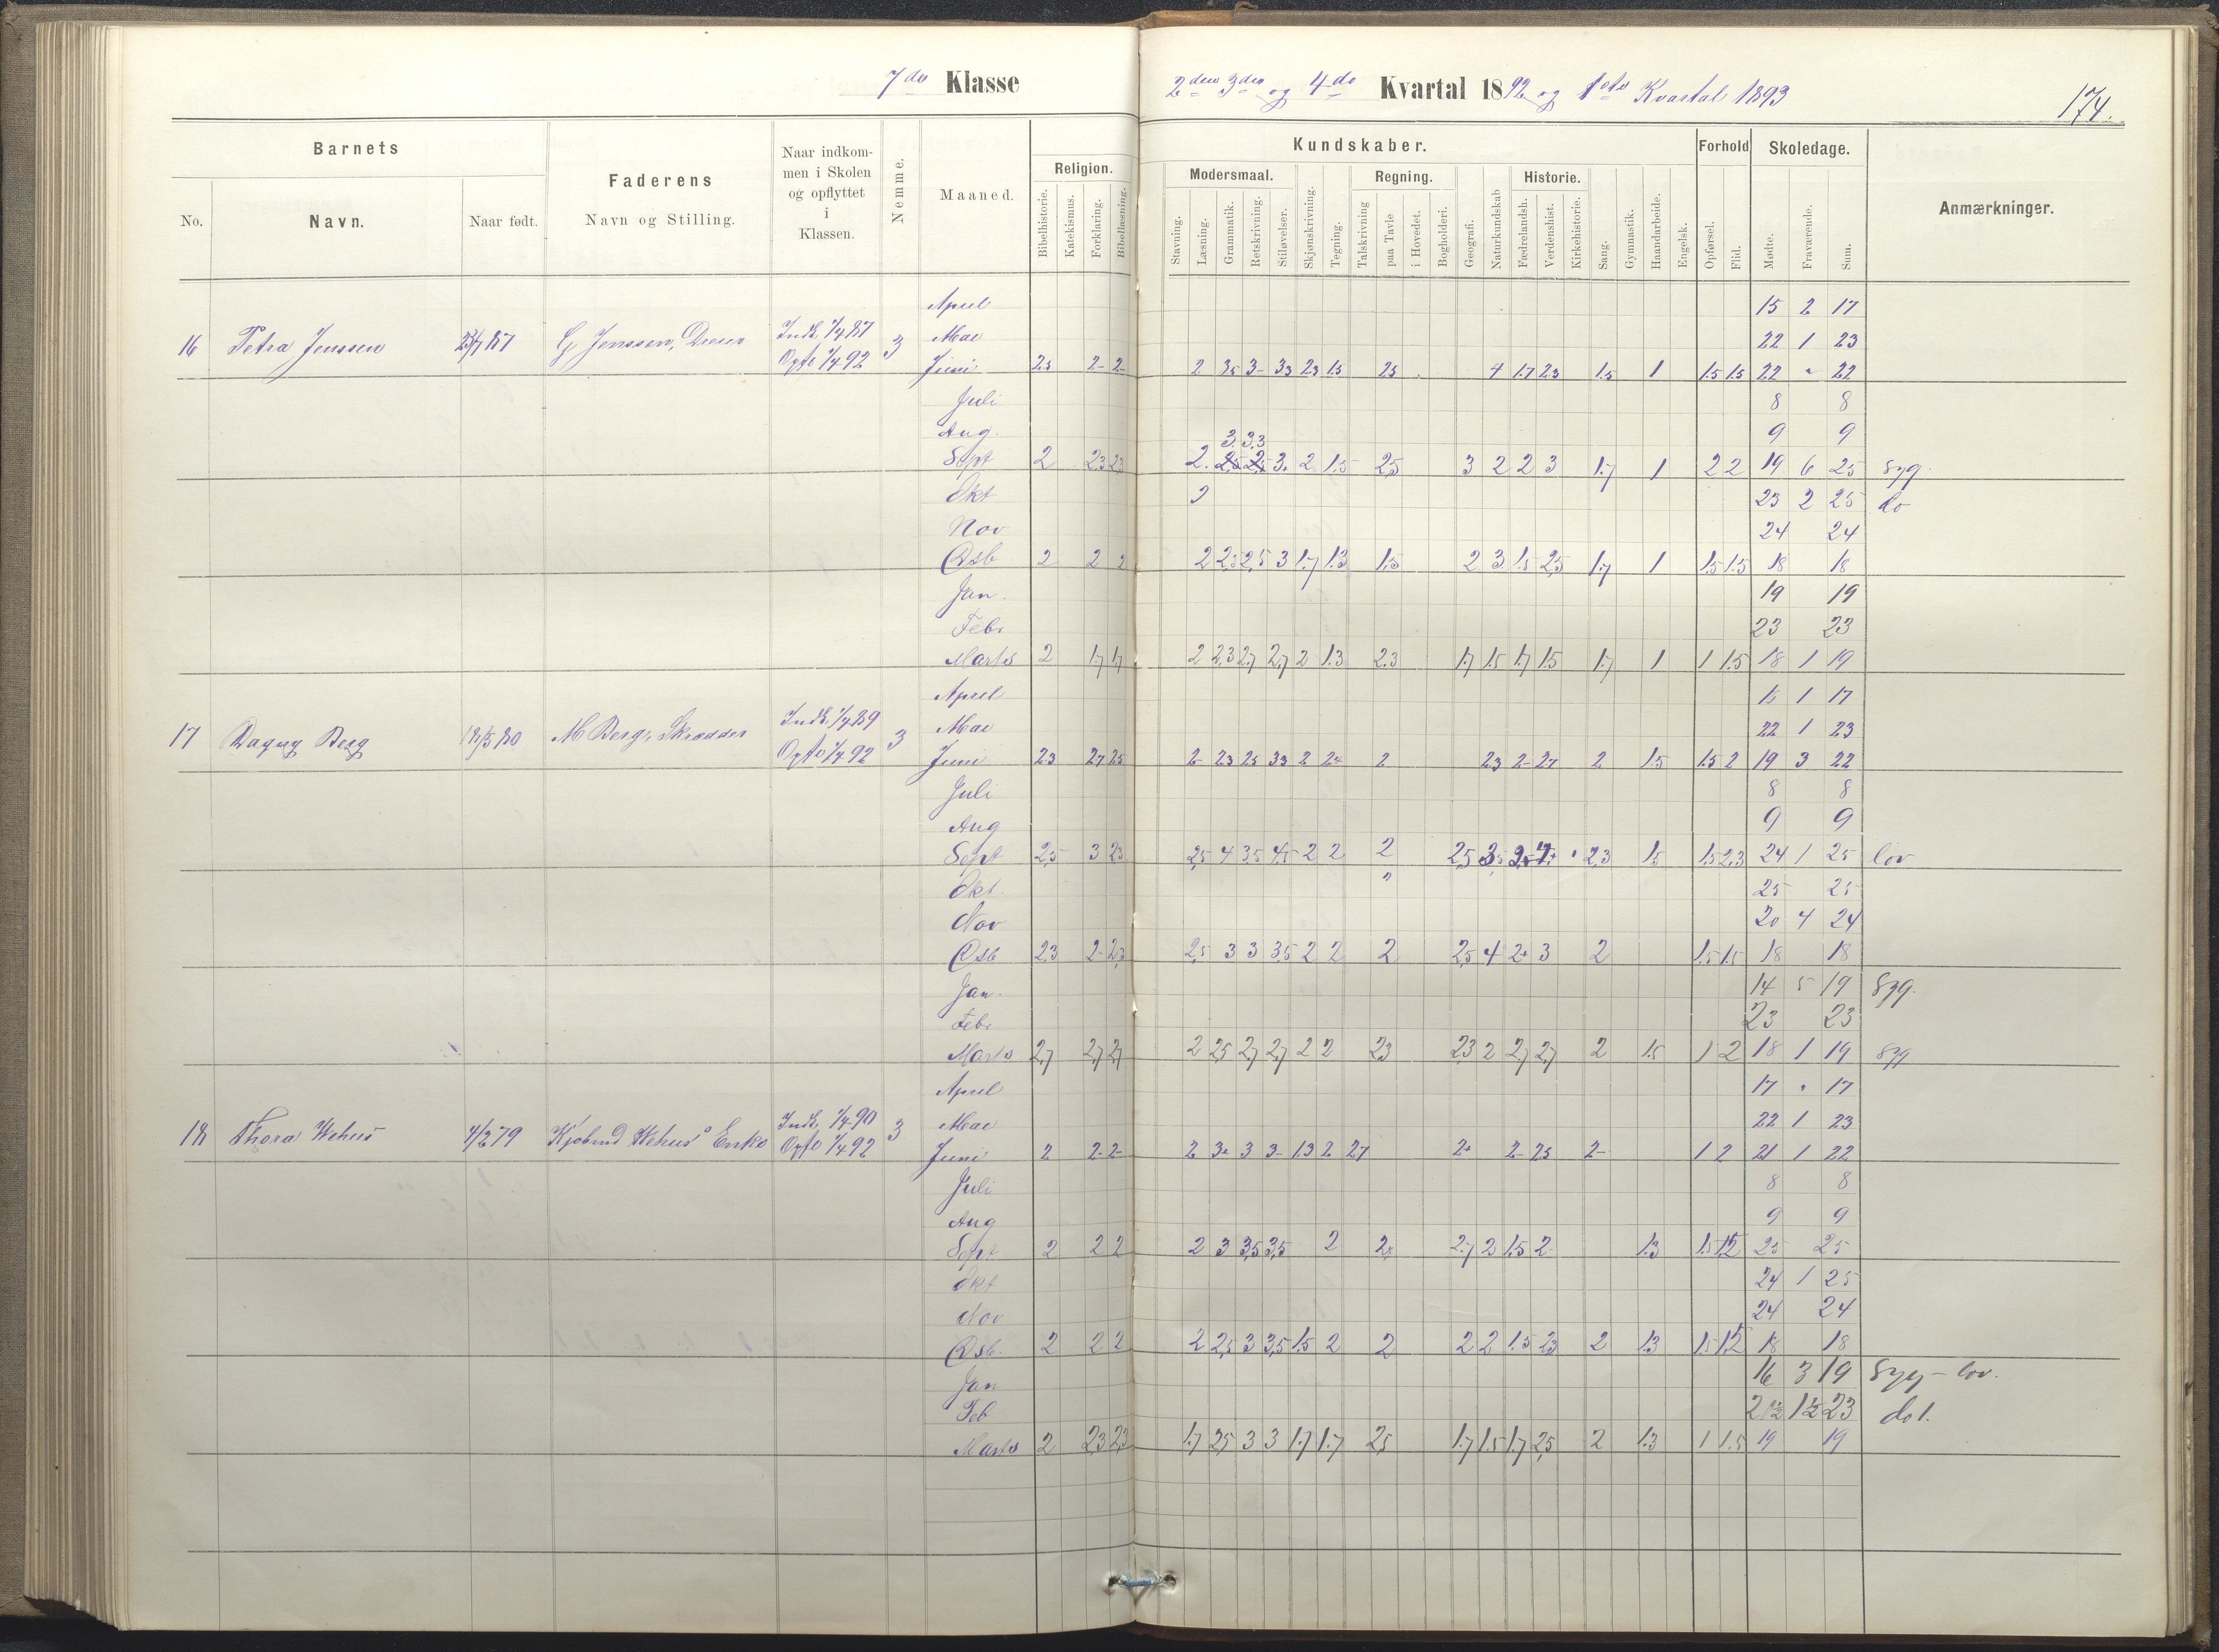 7de Klasse
2den 3die og 4de Kvartal 1892 og 1ste Kvartal 1893
174.
Barnets
No.
Navn.
Naar født.
Faderens
Navn og Stilling.
Naar indkom-
men i Skolen
og opflyttet
i
Klassen.
Nemme.
Maaned.
Kundskaber.
Religion.
Bibelhistorie.
Katekismus.
Forklaring.
Bibellæsning.
Modersmaal.
Stavning.
Læsning.
Grammatik.
Retskrivning.
Stiløvelser.
Skjønskrivning.
Tegning.
Regning.
Talskrivning
paa Tavle
i Hovedet.
Bogholderi.
Geografi.
Naturkundskab
Historie.
Fædrelandsh.
Verdenshist.
Kirkehistorie.
Sang.
Gymnastik.
Haandarbeide.
Engelsk.
Forhold
Opførsel.
Flid.
Skoledage.
Mødte.
Fraværende.
Sum.
Anmærkninger.
April 15 2 17
16 Petra Jenssen G Jenssen, Indk. 1/4 87 3 Mai 22 1 23
Opfl 1/4 92 Juni 2.5 2- 2- 2 3.5 3- 3.3 2.3 1.5 2.5 4 1.7 2.3 1.5 1 1.5 1.5 22 " 22
Juli 8 8
Aug. 9 9
3. 3.3
Sept 2 2.3 2.3 2. 2.5 2.5 3. 2 1.5 2.5 3 2 2 3 1.7 1 2 2 19 6 25 syg
Okt 2 23 2 25 do
Nov 24 24
Dsb 2 2 2 2 2.5 2.5 3 1.7 1.3 1.5 2 3 1.5 2.5 1.7 1 1.5 1.5 18 18
Jan. 19 19
Febr 23 23
Marts 2 1.7 1.7 2 2.3 2.7 2.7 2 1.3 2.3 1.7 1.5 1.7 1.5 1.7 1 1 1.5 18 1 19
April 16 1 17
17 Dagny Berg 18/5 80 M Berg, Skrædder Indk. 1/4 89 3 Mai 22 1 23
Opfl 1/4 92 Juni 2.3 2.7 2.5 2- 2.3 2.5 3.3 2 2+ 2 2.3 2- 2.7 2 1.5 1.5 2 19 3 22
Juli 8 8
Aug 9 9
Sept 2.5 3 2.3 2.5 4 3.5 4.5 2 2 2 2.5 2.3 1.5 1.5 2.3 24 1 25 lov
Okt. " 25 25
Nov 20 4 24
Dsb 2.3 2- 2.3 2.5 3 3 3.5 2 2 2 2.5 4 2+ 3 2 1.5 1.5 18 18
Jan. 14 5 19 syg.
Febr 23 23
Marts 2.7 2.7 2.7 2 2.5 2.7 2.7 2 2 2.3 2.3 2 2.7 2.7 2 1.5 1 2 18 1 19 syg
April 17 " 17
18 Thora Wehus 4/2 79 Wehus' Enke Indk. 1/4 90 3 Mai 22 1 23
Opfl 1/4 92 Juni 2 2- 2- 2 3+ 3 3- 1.3 2 2.7 2+ 2- 2.5 2- 1 2 21 1 22
Juli 8 8
Aug 9 9
Sept 2 2 2 2 3 3.5 3.5 2 2.7 2 1.5 2- 1.3 1.5 25 25
Okt 24 1 25
Nov 24 24
Dsb. 2 2 2 2 2.5 3 3.5 1.5 2 2 2 2 1.5 2.3 2 1.3 1.5 18 18
Jan 16 3 19 syg - lov.
Feb 21½ 1½ 23 do 1.
Marts 2 2.3 2.3 1.7 2.5 3 3 1.7 1.7 2.5 1.7 1.5 1.7 2.5 2 1.3 1 1.5 19 19